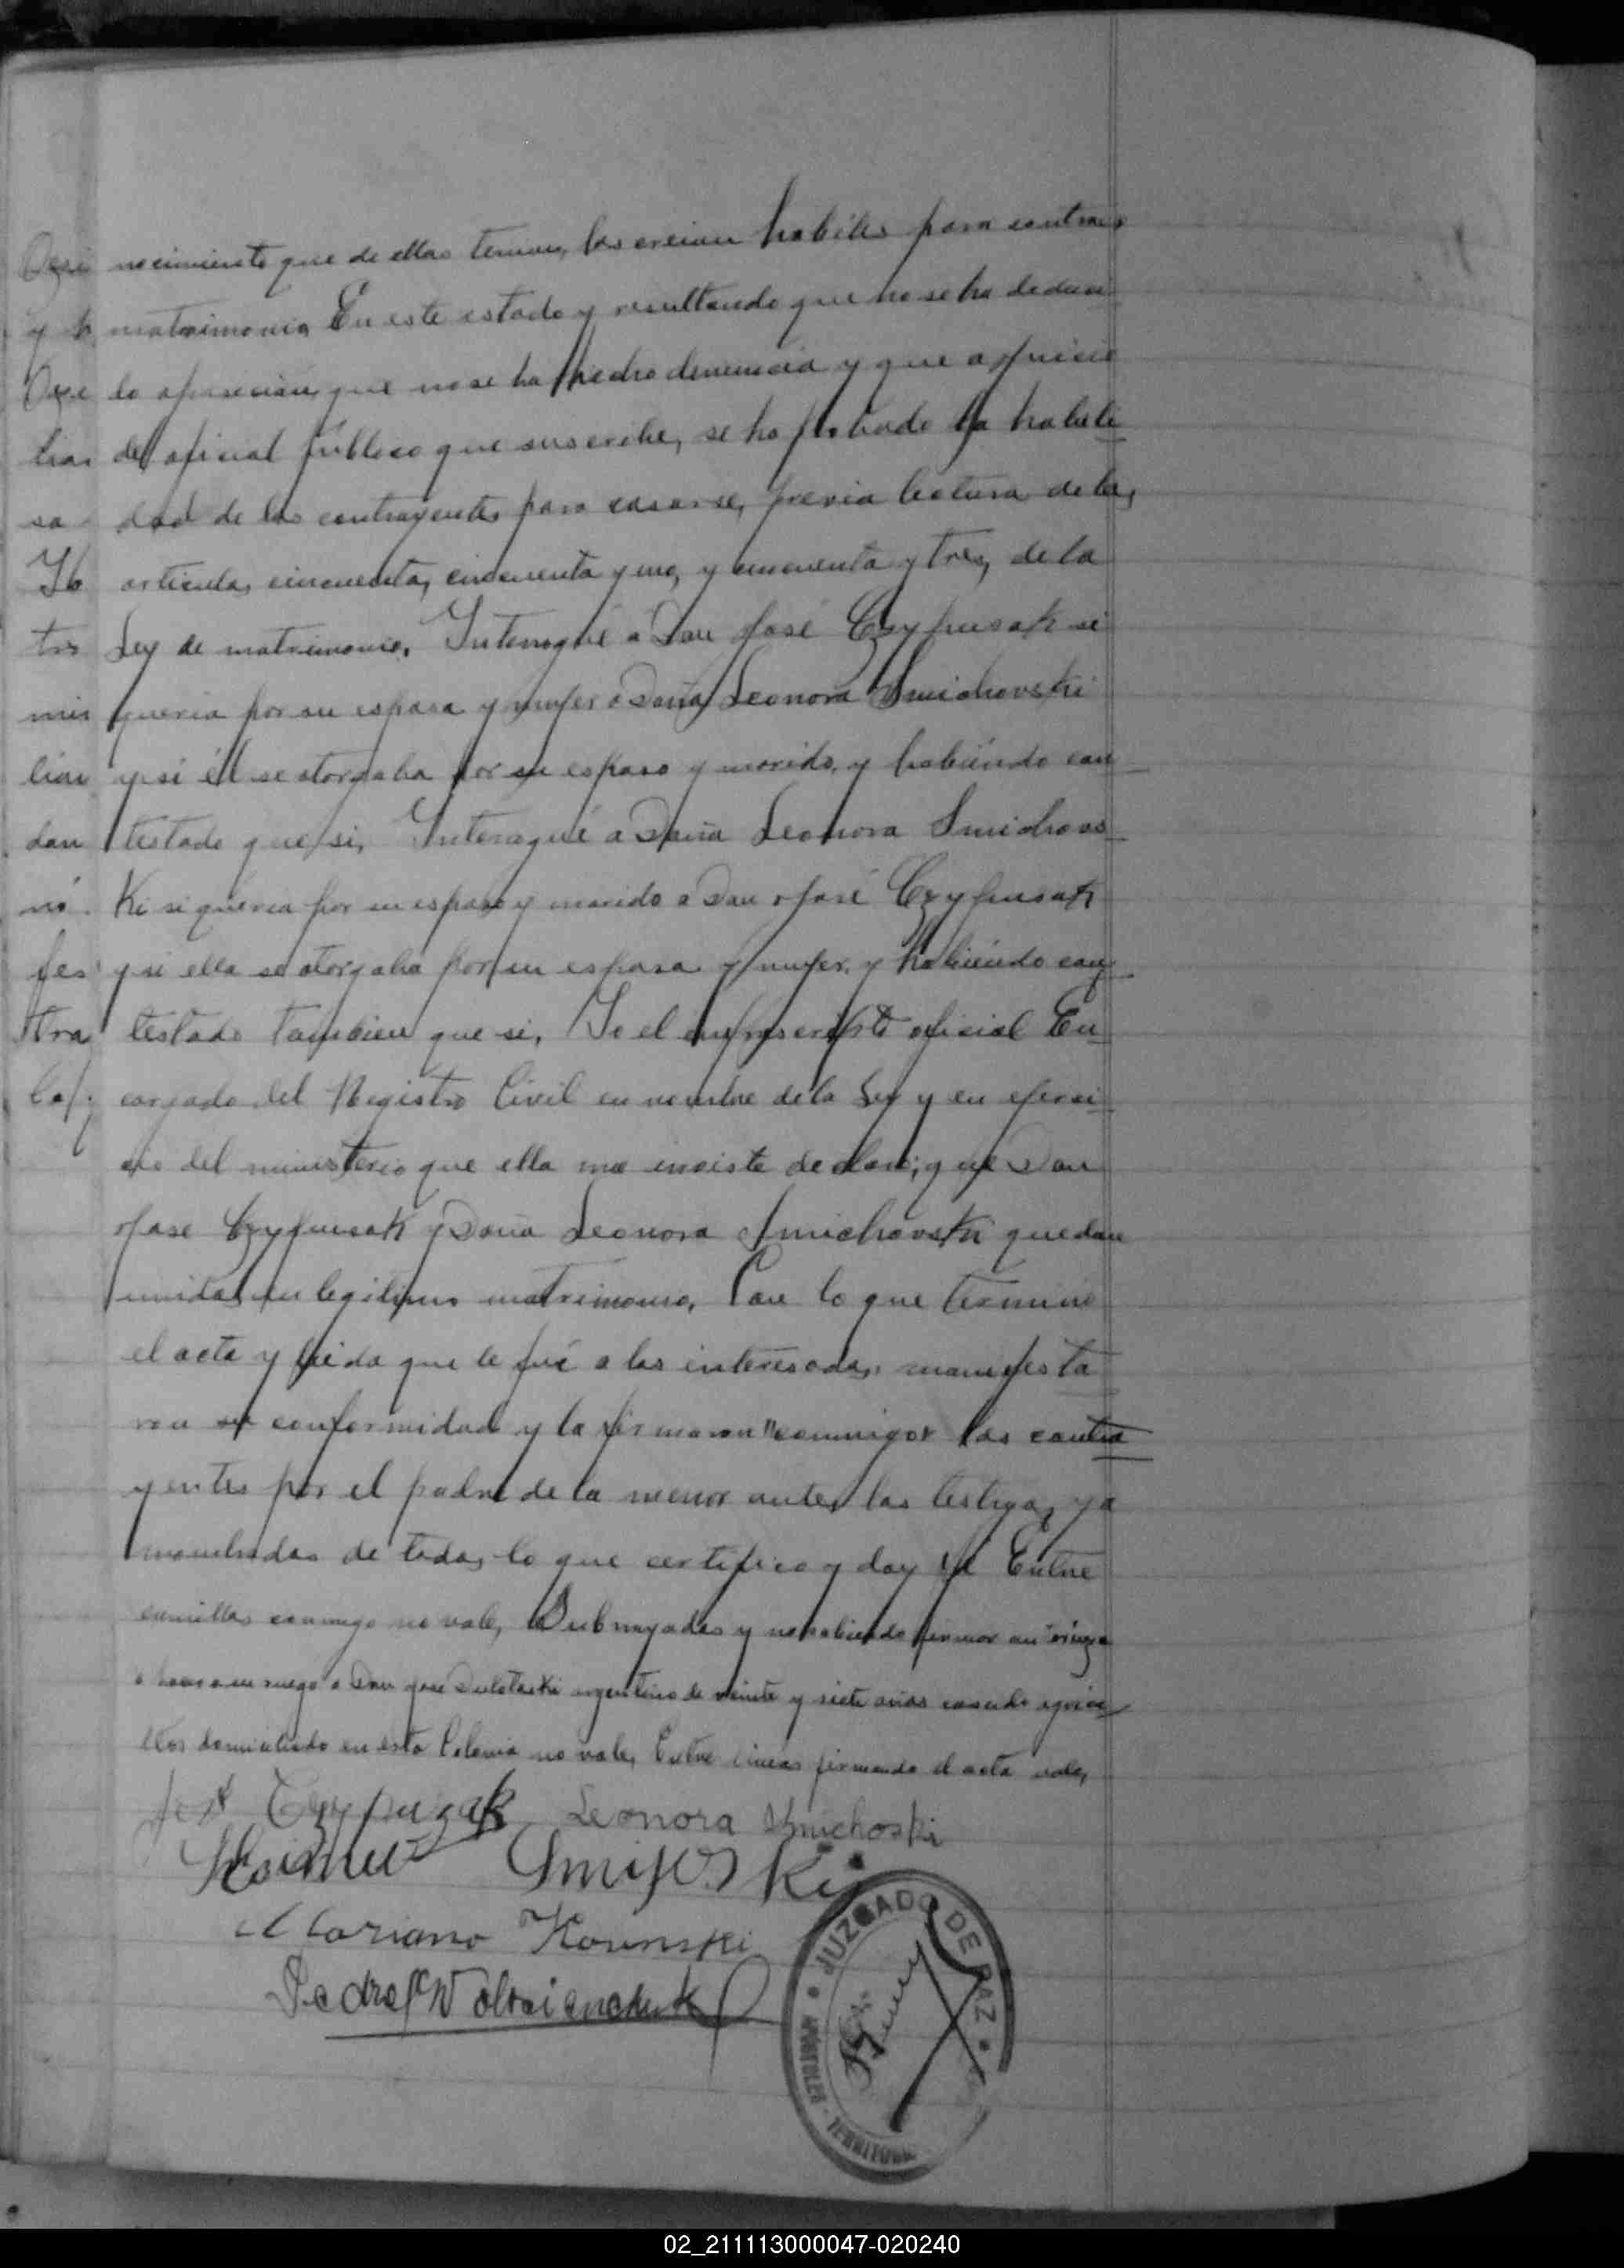 nocimiento que de ellos tenian, los creian habiles para contraer
matrimonio, En este estado y resultando que no se ha deduci
do oposición que no se ha hecho denuncia y que a juicio
del oficial público que suscribe, se ha probado la habili
dad de los contrayentes para casarse, previa lectura de los
articulos, cincuenta, cincuenta y uno, y cincuenta y tres, de la
Ley de matrimonio, Interrogué a Don José Czypusak si
queria por su esposa y mujer a Doña Leonora Smichovski
y si él se otorgaba por su esposo y marido, y habiéndo con
testado que si, Interrogué a Doña Leonora Smichovs
Ki si queria por su esposo y marido a Don José Czypusak
y si ella se otorgaba por su esposa y mujer, y habiéndo con
testado tambien que si, Yo el infrascripto oficial En
cargado del Registro Civil en nombre de la Ley y en ejersi
cio del ministerio que ella me inviste declaro; que Don
Jose Czypusak y Doña Leonora Smichovski quedan
unidos en legitimo matrimonio, Con lo que termino
el acta y leida que le fué a los interesados, manifesta
ron su conformidad y la firmaron "conmigo" los contra
yentes por el padre de la menor antes los testigos ya
nombrados de todo lo que certifico y doy fé Entre
comillas conmigo no vale, Subrayados y no sabiendo firmar
a su ruego a Don Jose argentino de veinte y siete años casado agricu
ltor domiciliado en esta Colonia no vale, Entre lineas firmando el acta vale,
José Czypuzak Leonora Smichoski
Smijoski
Mariano Kounski
Pedro Woloscianchuk
JUZGADO DE PAZ
TERRITORIO